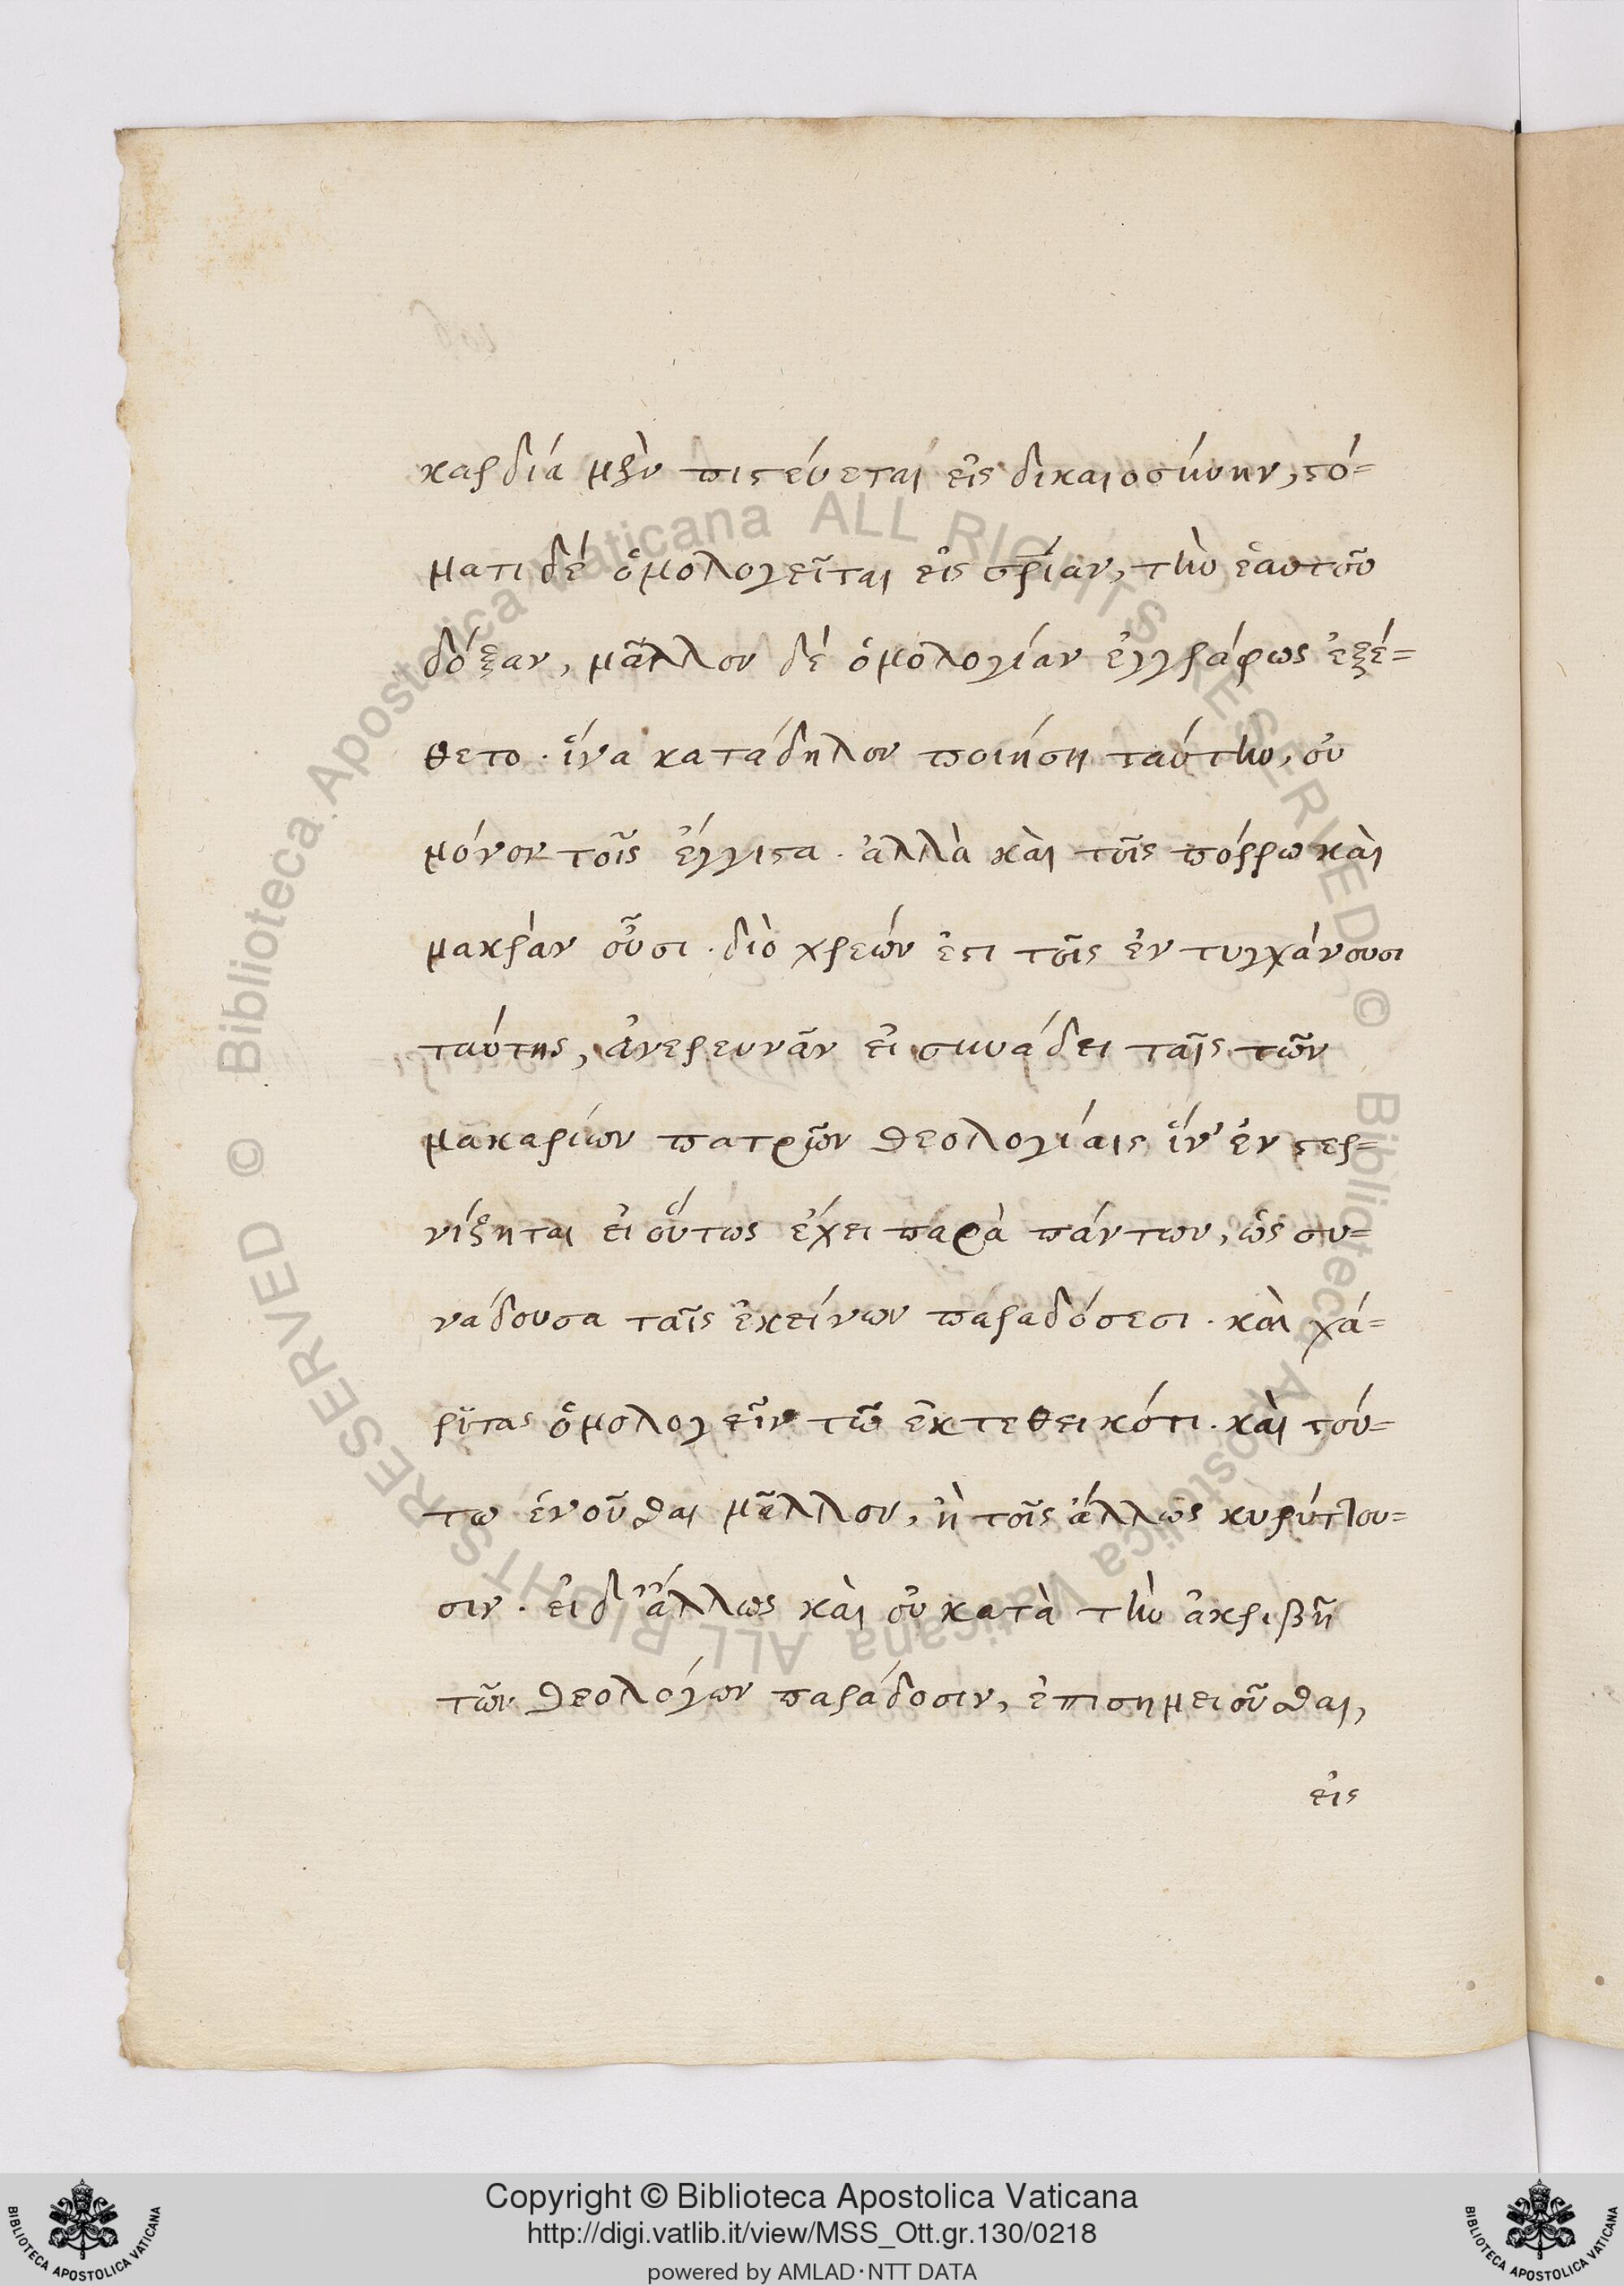 καρδία μὲν πιστεύεται εἰς δικαιοσύνην, στό=
ματι δέ ὁμολογεῖται εἰς σρίαν, τὴν ἑαυτοῦ
δόξαν, μᾶλλον δέ ὁμολογίαν ἐγγράφως ἐξέ=
θετο · ἵνα κατάδηλον ποιήση ταύτην, οὐ
μόνον τοῖς ἔγγιστα · ἀλλὰ καὶ τοῖς πόρρω καὶ
μακρὰν οὖσι · διὸ χρεών ἐστι τοῖς ἐν τυγχάνουσι
ταύτης, ἀνερευνᾶν εἰ συνάδει ταῖς τῶν
μακαρίων πατρῶν θεολογίαις ἵν' ἐν στερ=
νίζηται εἰ οὕτως ἔχει παρὰ πάντων, ὡς συ=
νάδουσα ταῖς ἐκείνων παραδόσεσι · καὶ χά=
ριτας ὁμολογεῖν τῶ ἐκτεθεικότι · καὶ τού=
τω ἑνοῦσθαι μᾶλλον, ἢ τοῖς ἄλλως κυρύττου=
σιν · εἰ δ' ἄλλως καὶ οὐ κατὰ τὴν ἀκριβῆ
τῶν θεολόγων παράδοσιν, ἐπισημειοῦσθαι,
εἰς
Copyright © Biblioteca Apostolica Vaticana
http://digi.vatlib.it/view/MSS_Ott.gr.130/0218
powered by AMLAD·NTT DATA
© Biblioteca Apostolica Vaticana ALL RIGHTS RESERVED © Biblioteca Apostolica Vaticana ALL RIGHTS RESERVED
BIBLIOTECA APOSTOLICA VATICANA
BIBLIOTECA APOSTOLICA VATICANA